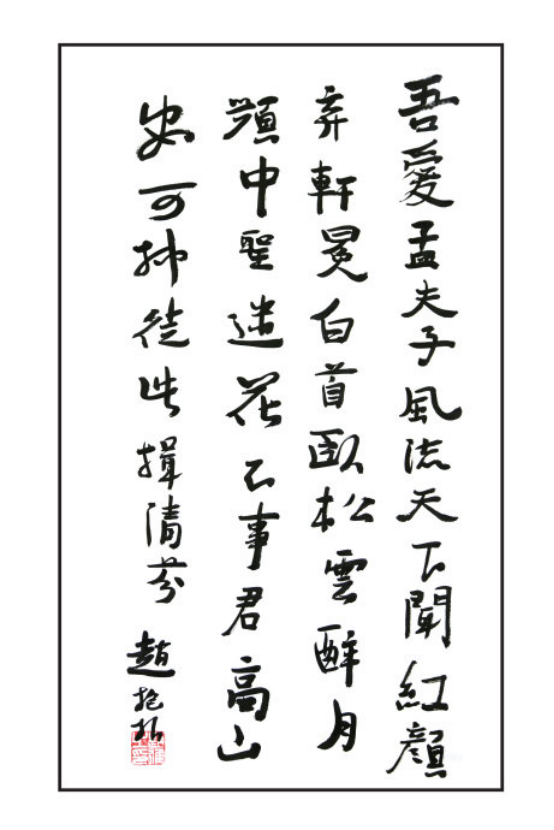 吾愛孟夫子風流天下聞紅顏
弃軒冕白首臥松雲醉月
頻中聖迷花不事君高山
安可仰徒此揖清芬
趙抱